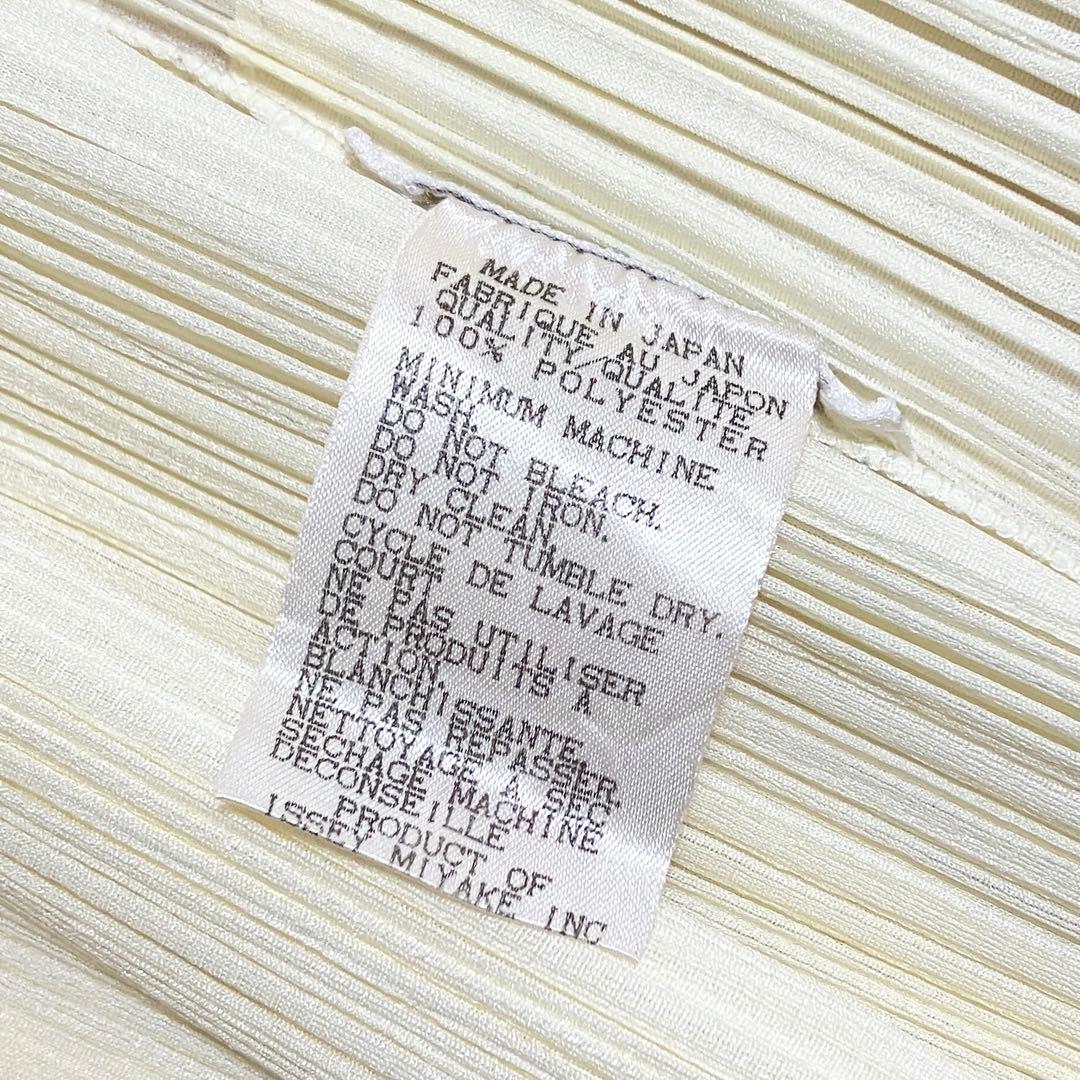 MADE IN JAPAN
FABRIQUE AU JAPON
QUALITY/QUALITE
100% POLYESTER
MINIMUM MACHINE
WASH.
DO NOT BLEACH.
DO NOT IRON.
DRY CLEAN.
DO NOT TUMBLE DRY.
CYCLE DE LAVAGE
COURT
NE PAS UTILISER
DE PRODUITS A
ACTION
BLANCHISSANTE.
NE PAS REPASSER.
NETTOYAGE A SEC
SECHAGE MACHINE
DECONSEILLE
PRODUCT OF
ISSEY MIYAKE INC